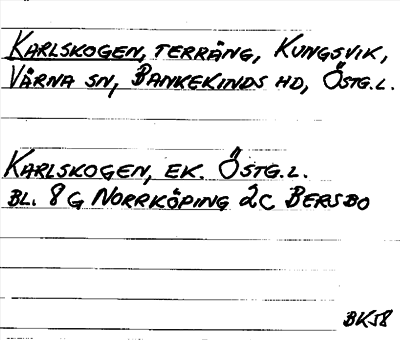 KARLSKOGEN, TERRÄNG, KUNGSVIK,
VÅRNA SN, BANKEKINDS HD, ÖSTG.L.
KARLSKOGEN, EK. ÖSTG.L.
BL. 8G NORRKÖPING 2C BERSBO
BK58